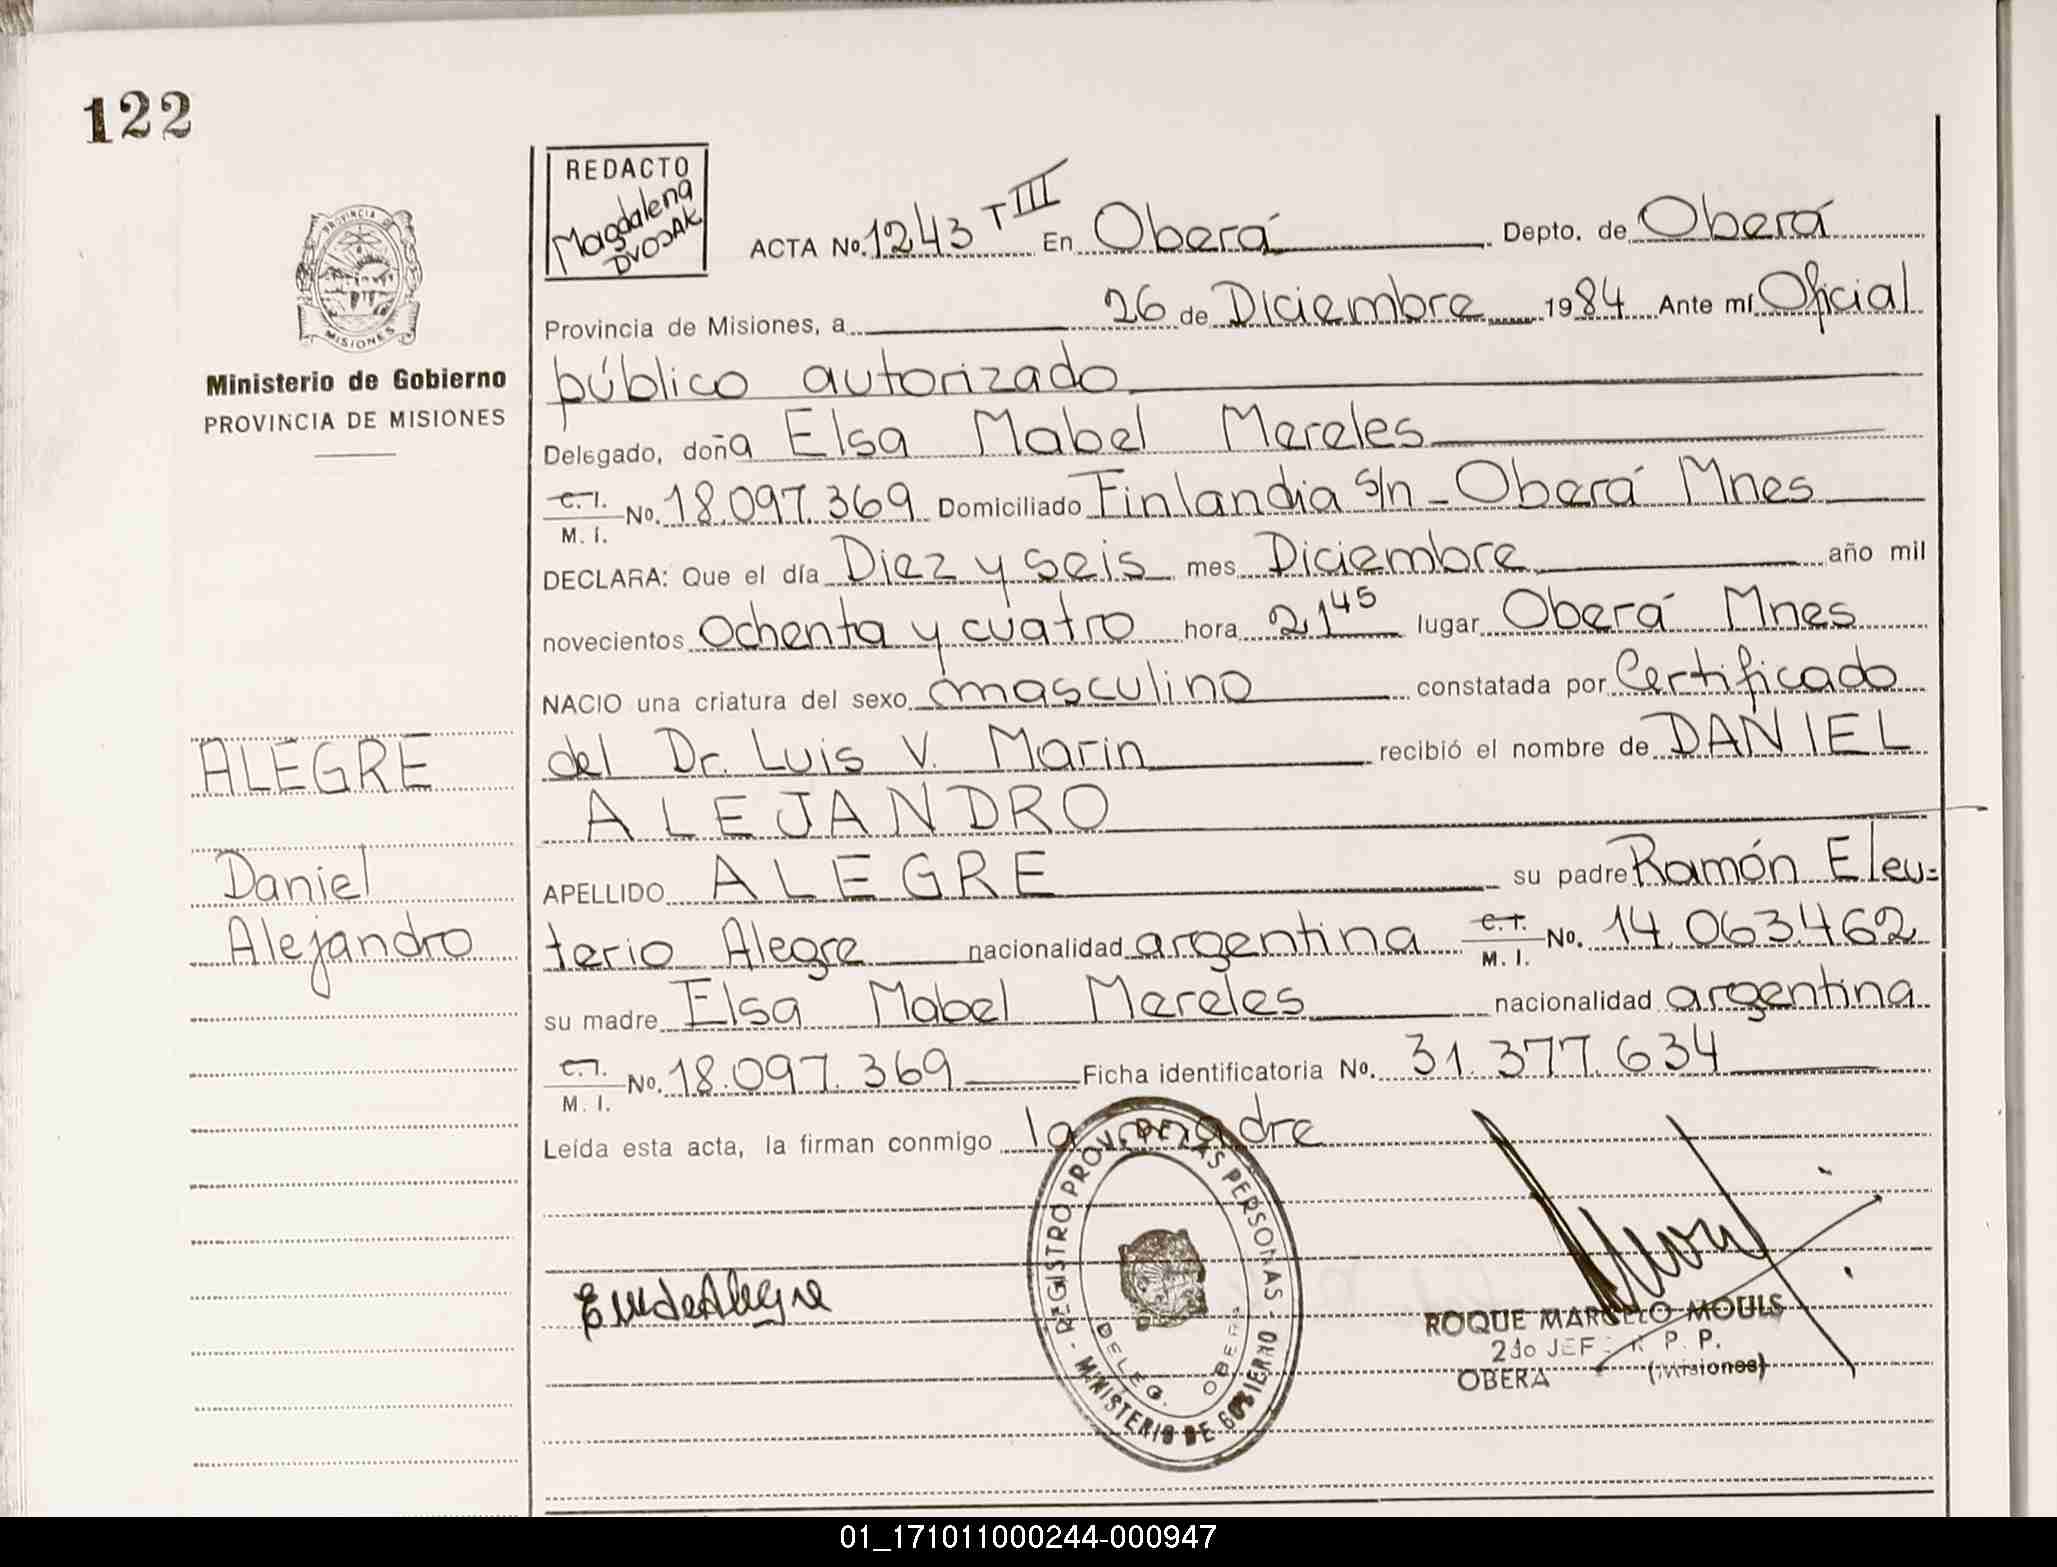 122
REDACTO
Magdalena
DVOJAK
PROVINCIA DE
MISIONES
Ministerio de Gobierno
PROVINCIA DE MISIONES
ACTA No. 1243 T III En Oberá Depto. de Oberá
Provincia de Misiones, a 26 de Diciembre 1984 Ante mí Oficial
público autorizado
Delegado, doña Elsa Mabel Mereles
C.I. M.I. No. 18.097.369 Domiciliado Finlandia s/n - Oberá Mnes
DECLARA: Que el día Diez y seis mes Diciembre año mil
novecientos ochenta y cuatro hora 21 45 lugar Oberá Mnes
NACIO una criatura del sexo masculino constatada por Certificado
del Dr. Luis V. Marin recibió el nombre de DANIEL
ALEJANDRO
APELLIDO ALEGRE su padre Ramón Eleu=
terio Alegre nacionalidad argentina C.I. M.I. No. 14.063.462
su madre Elsa Mabel Mereles nacionalidad argentina
C.I. M.I. No. 18.097.369 Ficha identificatoria No. 31.377.634
Leída esta acta, la firman conmigo la madre
ALEGRE
Daniel
Alejandro
EMdeAlegre
REGISTRO PROV. DE LAS PERSONAS - MINISTERIO DE GOBIERNO -
DELEG. OBERA
ROQUE MARCELO MOULS
2do JEF R. P. P.
OBERA (Misiones)
01_171011000244-000947